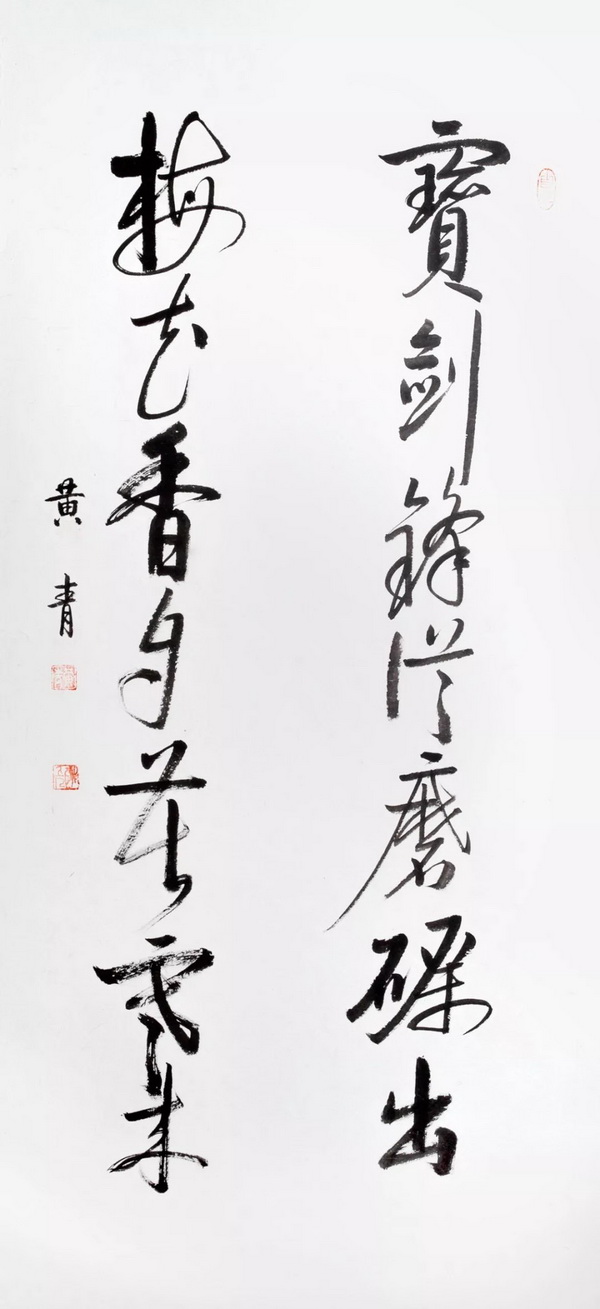 寶劍鋒從磨礪出
梅花香自苦寒来
黄青